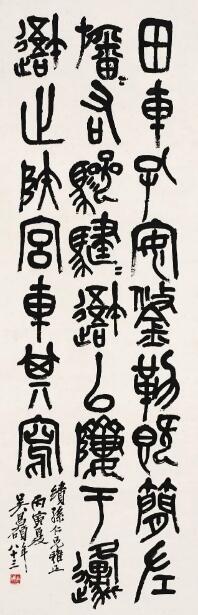 田車孔安鋚勒既簡左
旛=右驂騝=䢦以隮于邍
䢦止陜宮車其寫
績孫仁兄雅正
丙寅夏
吳昌碩年八十三